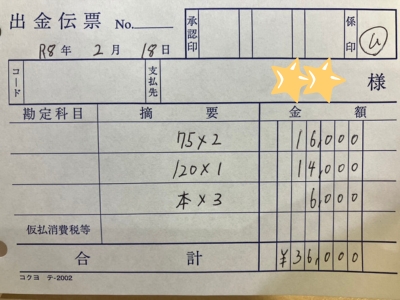 出金伝票 No. 承認印 係印 U
R8年 2月 18日
コード 支払先 様
勘定科目 摘要 金額
75×2 16,000
120×1 14,000
本×3 6,000
仮払消費税等
合計 ¥36,000
コクヨ テ-2002